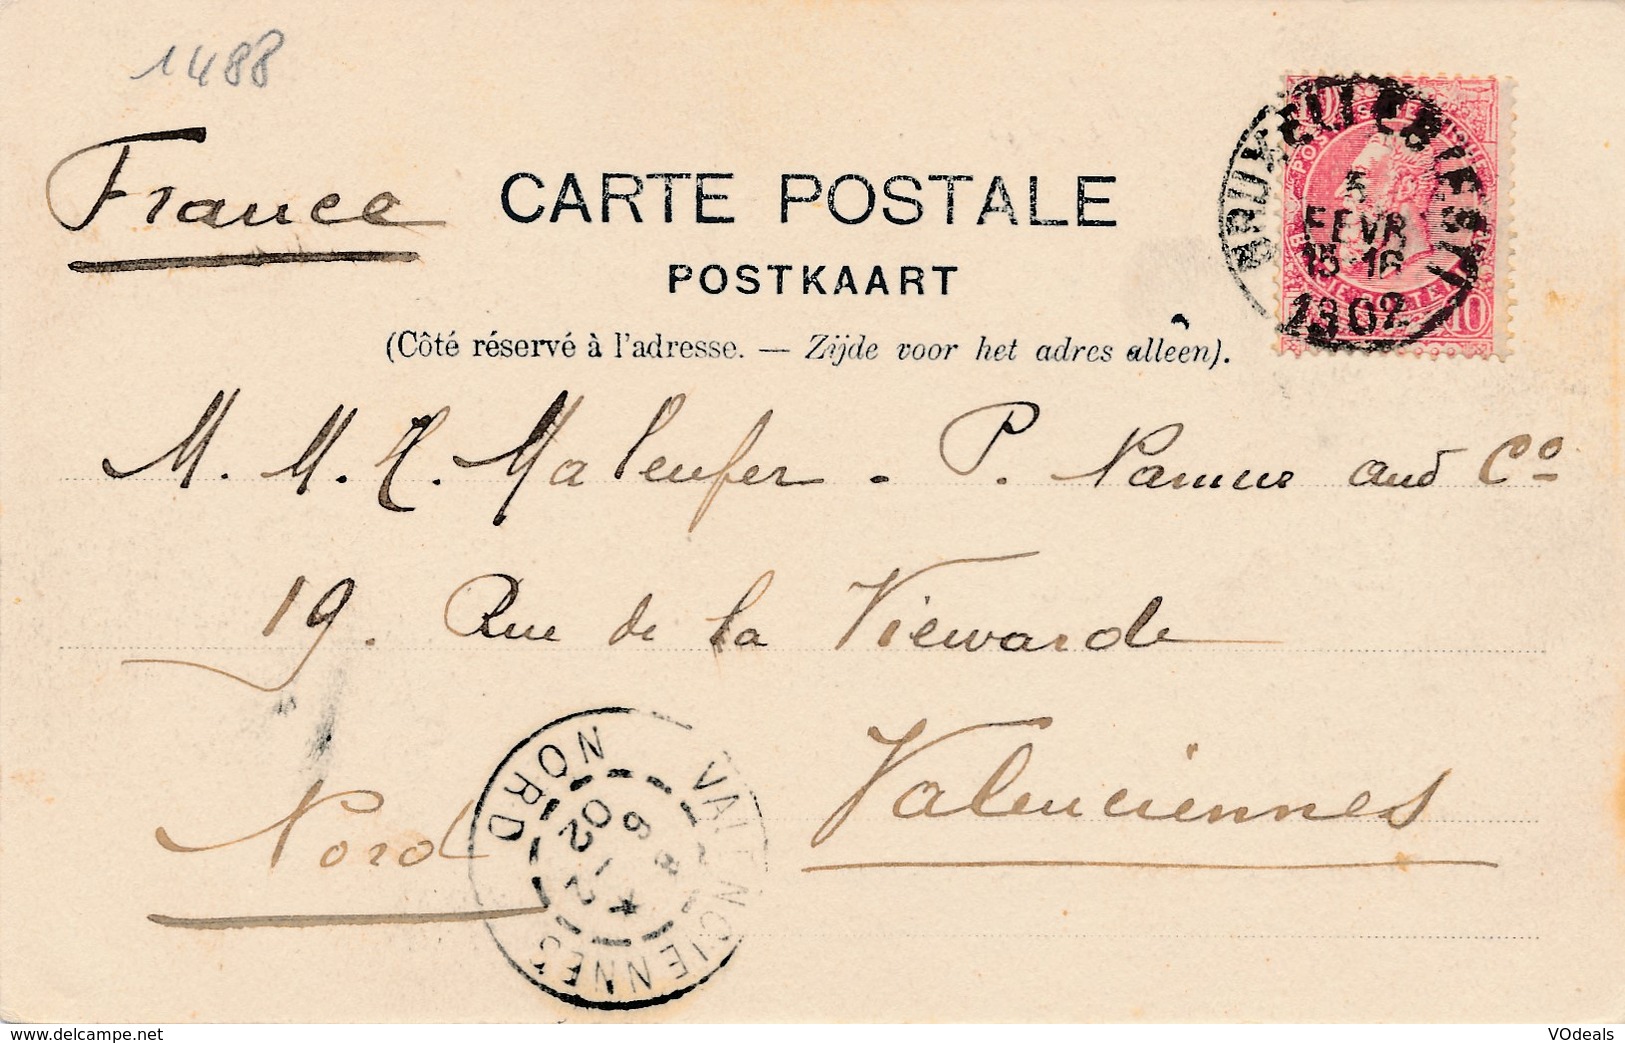 1488
France
CARTE POSTALE
POSTKAART
(Côté réservé à l'adresse. — Zijde voor het adres alleen).
5
FEVR
15-16
1902
10
M. M. H. Malenfer - P. Namur and Cº
19. Rue de la Viewarde
Valenciennes
Nord
VALENCIENNES
NORD
6 -2
02
www.delcampe.net
VOdeals